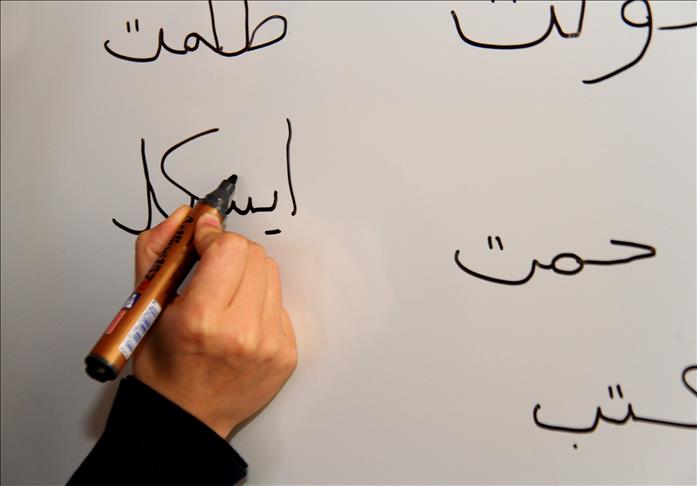 دولت طلمت
ایسکل
حمت